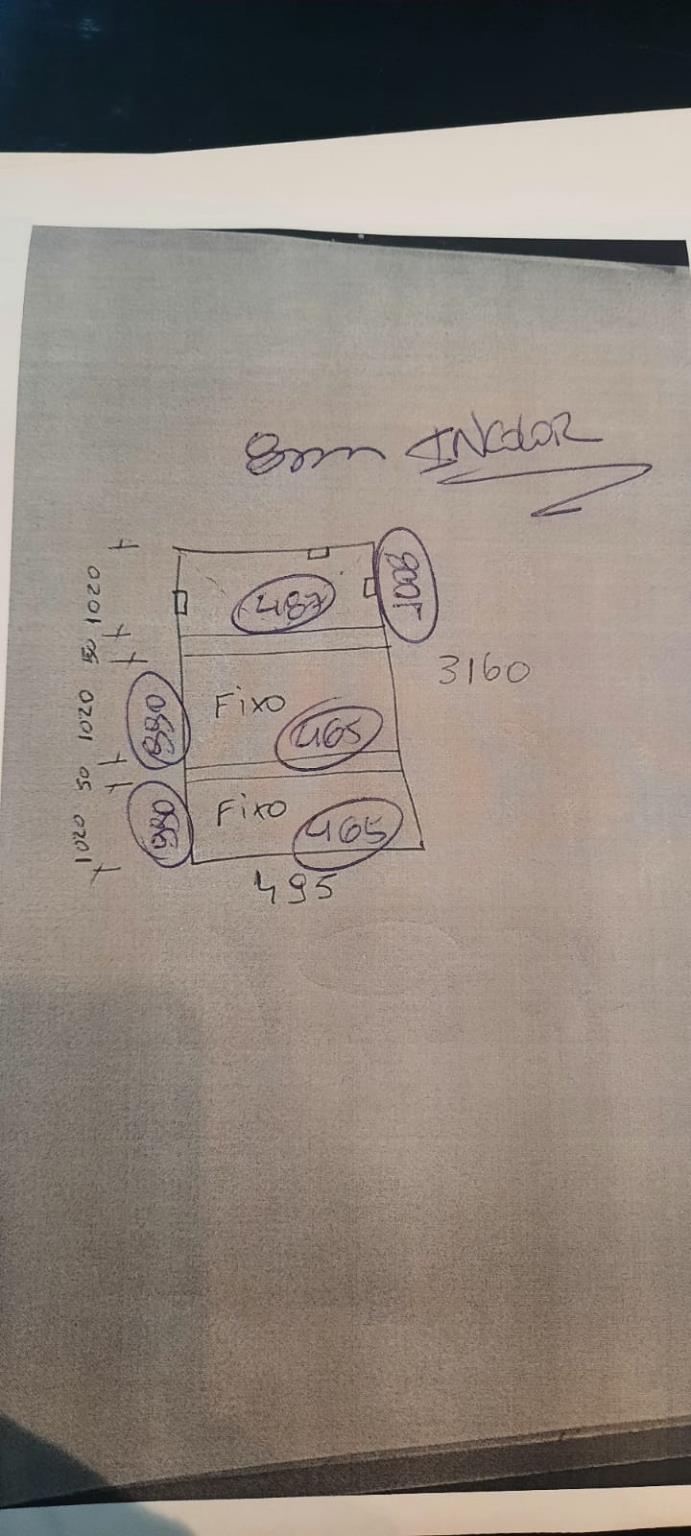 8mm INCOLOR
1020
487
1008
50
3160
1020
Fixo
465
50
1020
Fixo
465
495